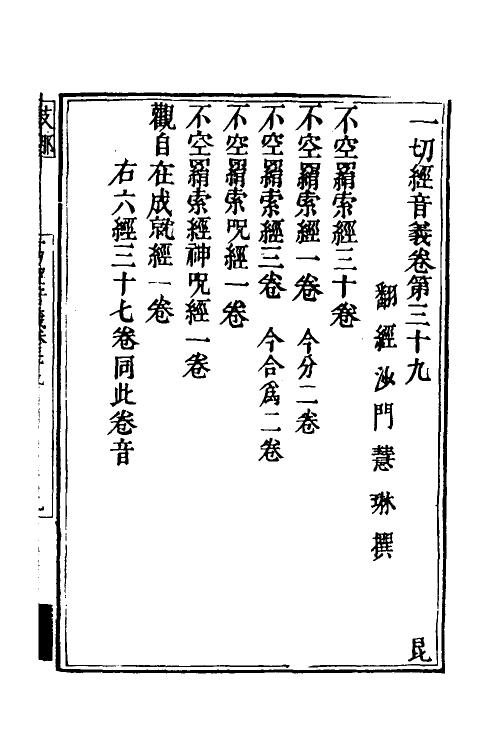 一切經音義卷第三十九
翻經沙門慧琳撰
不空羂索經三十卷
不空羂索經一卷 今分二卷
不空羂索經三卷 今合爲二卷
不空羂索呪經一卷
不空羂索經神呪經一卷
觀自在成就經一卷
右六經三十七卷同此卷音
昆